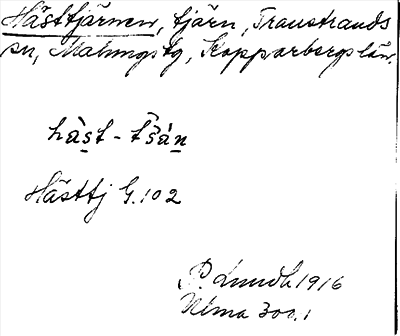 Hästtjärnen, tjärn, Transtrands
sn, Malungs tg, Kopparbergs län.
hàst - tšä́n
Hästtj G. 102
P. Lundh 1916
Ulma 300.1